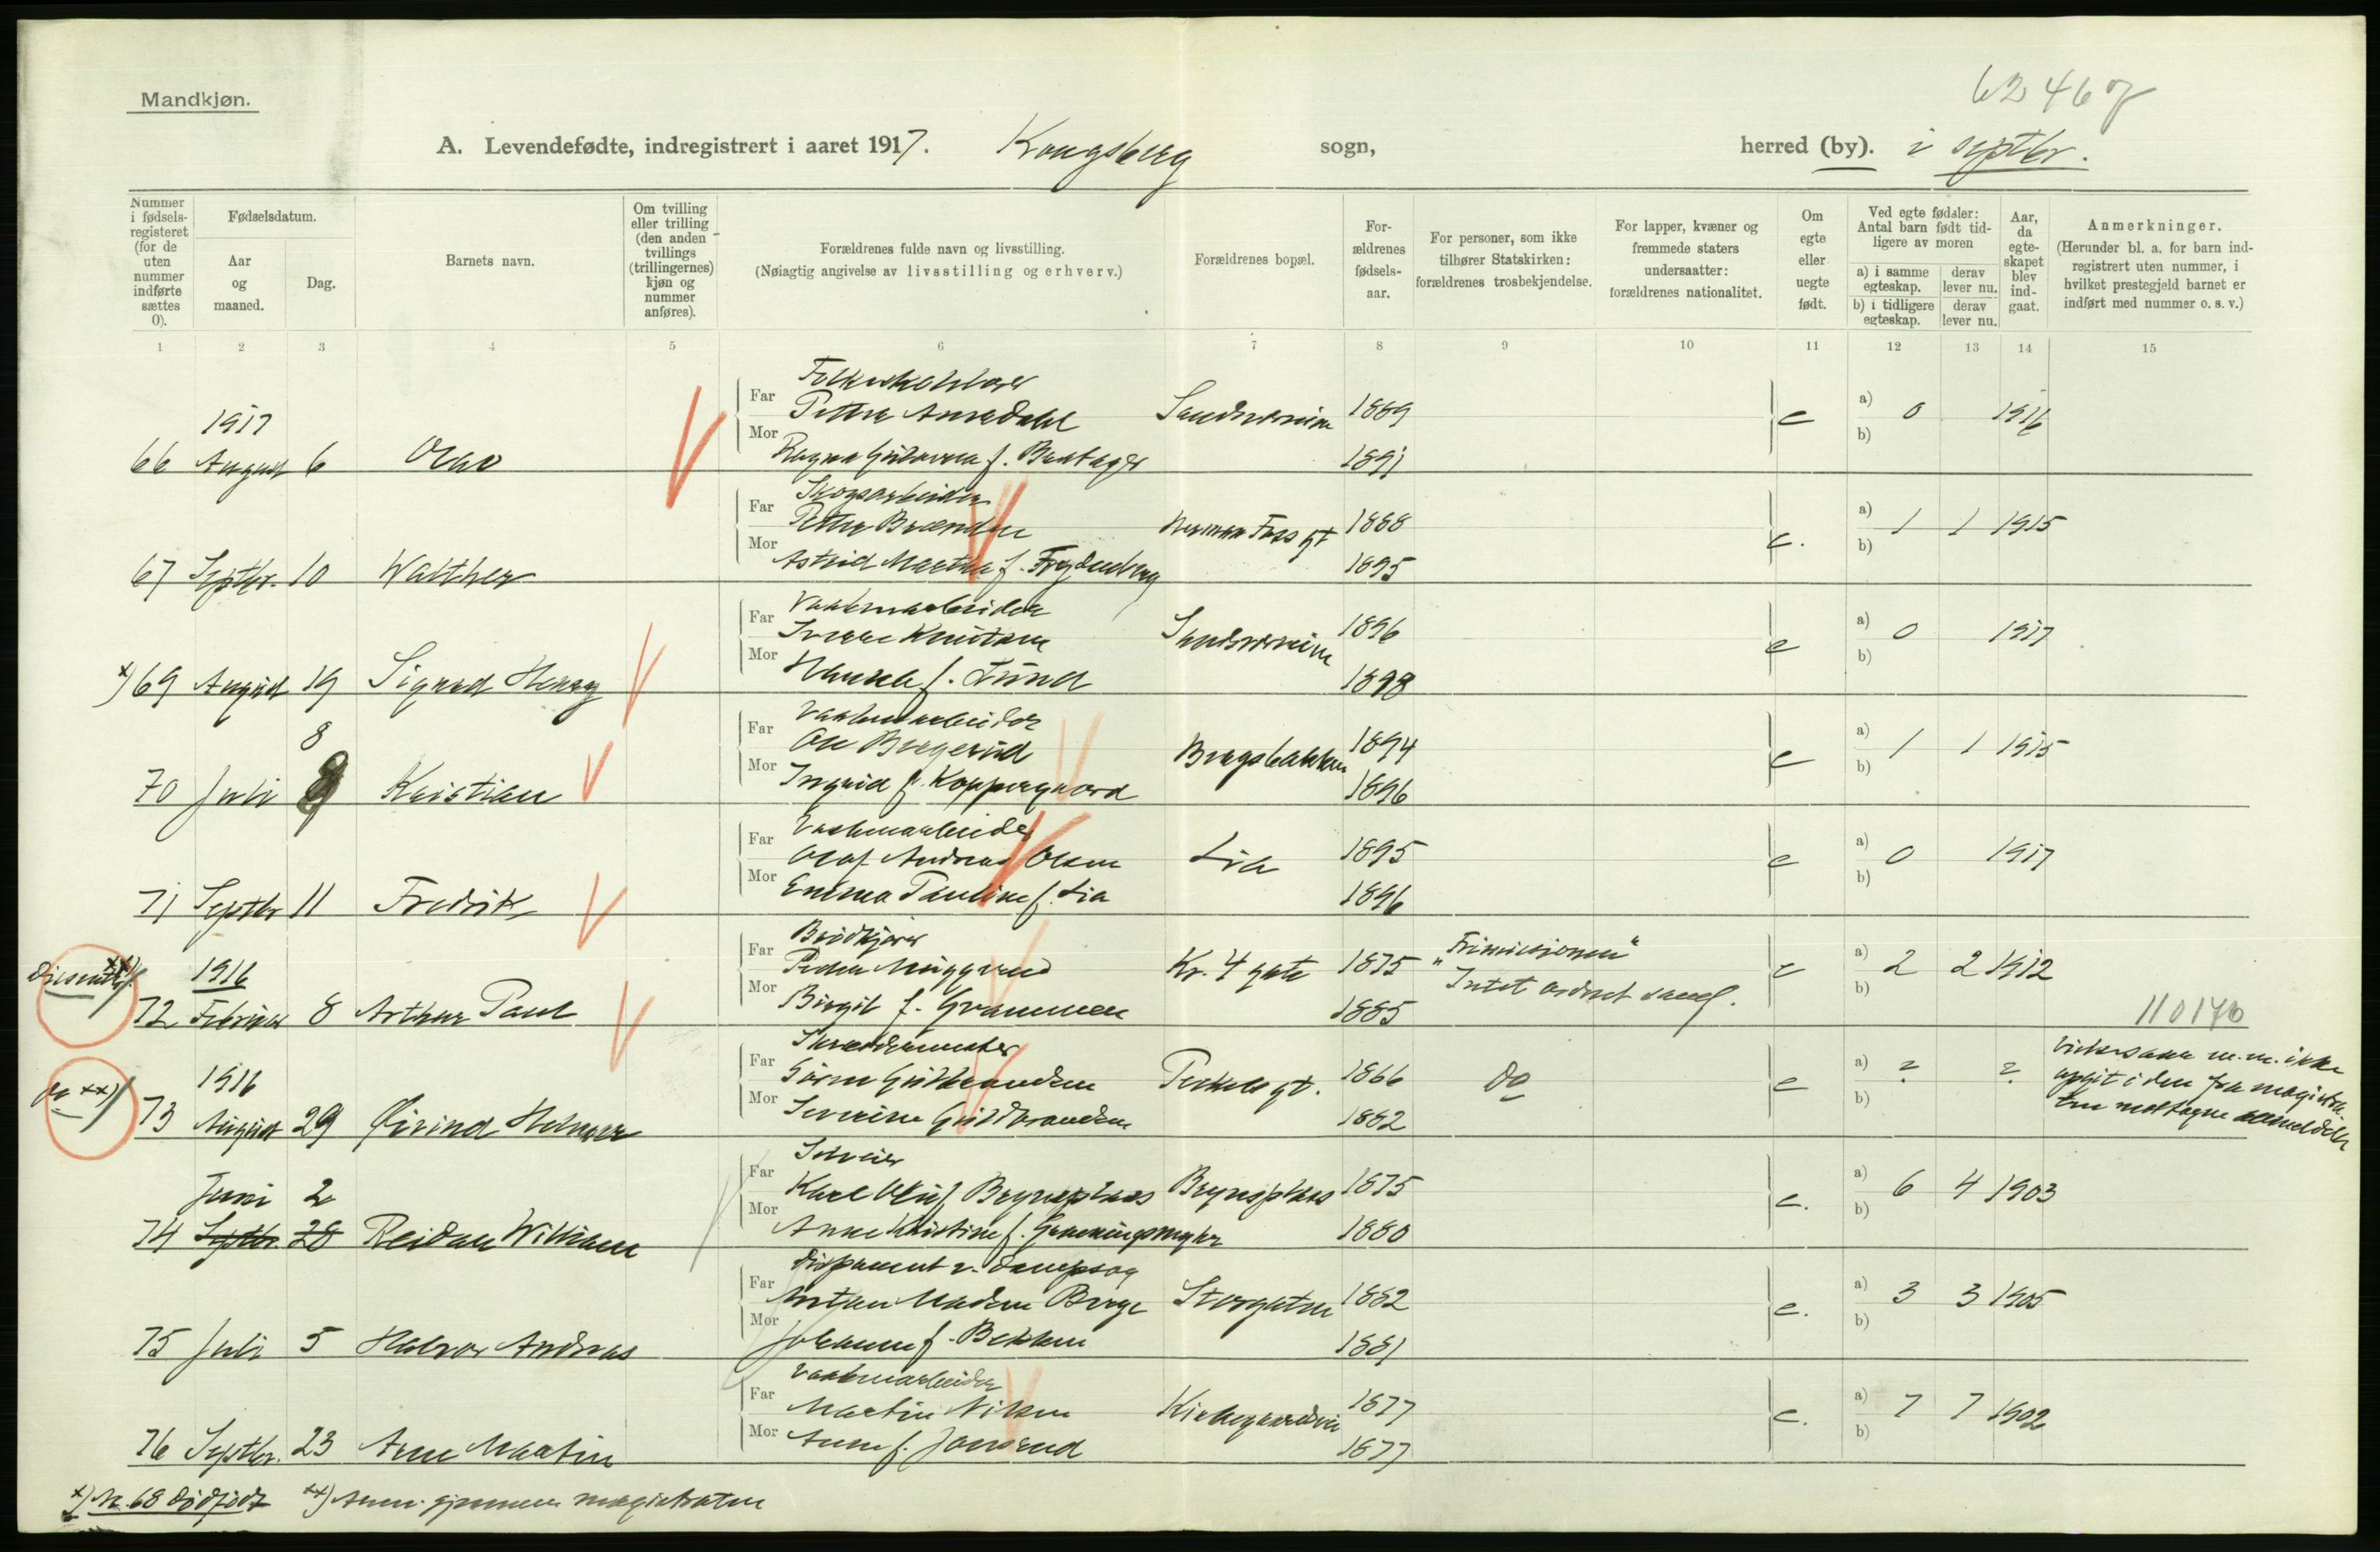 Mandkjøn.
62 467
A. Levendefødte, indregistrert i aaret 1917. Kongsberg sogn, herred (by). i septbr.
Nummer i fødselsregisteret (for de uten nummer indførte sættes 0).
Fødselsdatum.
Aar og maaned.
Dag.
Barnets navn.
Om tvilling eller trilling (den anden tvillings (trillingernes) kjøn og nummer anføres).
Forældrenes fulde navn og livsstilling.
(Nøiagtig angivelse av livsstilling og erhverv.)
Forældrenes bopæl.
Forældrenes fødselsaar.
For personer, som ikke tilhører Statskirken: forældrenes trosbekjendelse.
For lapper, kvæner og fremmede staters undersaatter: forældrenes nationalitet.
Om egte eller uegte født.
Ved egte fødsler: Antal barn født tidligere av moren
a) i samme egteskap.
derav lever nu.
b) i tidligere egteskap.
derav lever nu.
Aar, da egteskapet blev indgaat.
Anmerkninger.
(Herunder bl. a. for barn indregistrert uten nummer, i hvilket prestegjeld barnet er indført med nummer o. s. v.)
1 2 3 4 5 6 7 8 9 10 11 12 13 14 15
Folkeskolelærer
1917 Far Petter 1889 e a) 0 1916
Mor b)
66 August 6 Olav Ragna f. 1891
Skogsarbeider
Far Petter Brænden Herman Foss gt 1888 e. a) 1 1 1915
Mor b)
67 Septbr. 10 Walther Astrid Martha f. Frydenberg 1895
Vaabenarbeider
Far Knutsen 1896 e a) 0 1917
Mor b)
x) 69 August 19 Sigurd Henry f. Lund 1898
Vaabenarbeider
8 Far Ole 1894 e a) 1 1 1915
Mor b)
70 Juli Kristian Ingrid f. 1896
Vaabenarbeider
Far Olaf Andreas Olsen Lia 1895 e a) 0 1917
Mor b)
71 Septbr 11 Fredrik Emma Pauline f. Lia 1896
Brødkjører
xx) 1916 Far Peder Kr. 4 gate 1875 "Frimisionen" e a) 2 2 1912
Mor Intet ordnet samf. b)
72 Februar 8 Arthur Paul Birgit f. 1885 110170
Skræddermester
1916 Far Søren Gulbrandsen gt. 1866 do e a) ? ?
do xx) Mor b)
73 August 29 Øivind Severine Guldbrandsen 1882
m. m. ikke
opgit i den fra magistra-
ten mottagne anmeldelse
Selveier
Juni 2 Far Karl Oluf Brynsplass Brynsplass 1875 e. a) 6 4 1903
Mor b)
74 Septbr. 28 Reidar William Anne Kristine f. 1880
Disponent v. dampsag
Far Anton Madsen Berge Storgaten 1882 e. a) 3 3 1905
Mor b)
75 Juli 5 Halvor Andreas Johanne f. Bekken 1881
Vaabenarbeider
Far Martin Nilsen 1877 e. a) 7 7 1902
Mor b)
76 Septbr. 23 Arne Martin Anne f. 1877
x) Nr. 68 dødfødt xx) Anm. gjennem magistraten